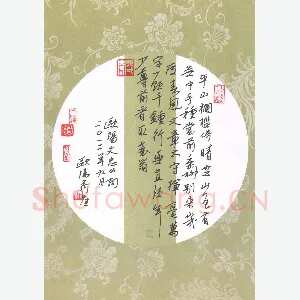 平山欄檻倚晴空山色有
無中手種堂前垂柳別來幾
度春風文章太守揮毫萬
字一飲千鍾行樂直須年
少尊前看取衰翁
歐陽文忠公詞
二〇一二年九月
歐陽